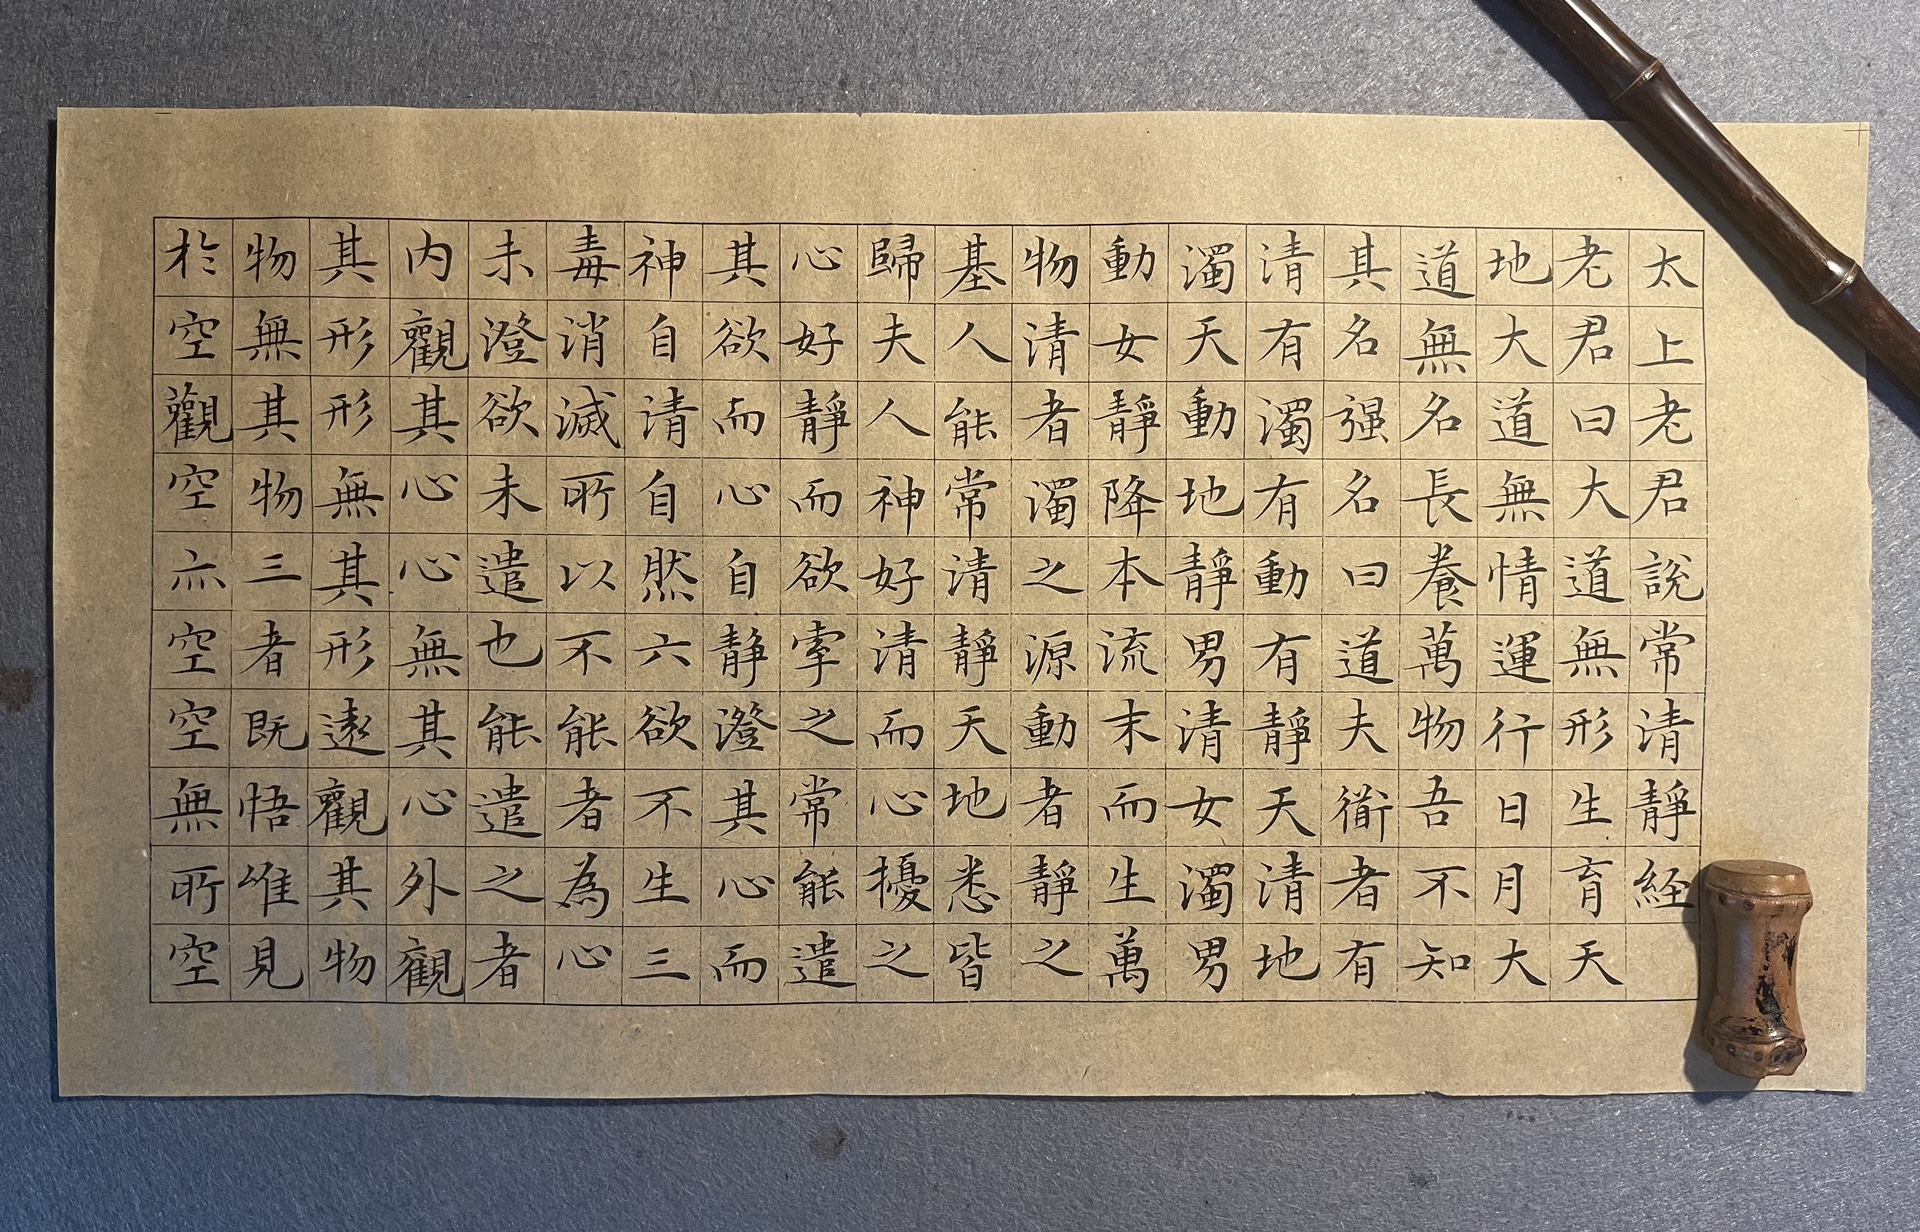 太上老君說常清靜経
老君曰大道無形生育天
地大道無情運行日月大
道無名長養萬物吾不知
其名强名曰道夫衜者有
清有濁有動有靜天清地
濁天動地靜男清女濁男
動女靜降本流末而生萬
物清者濁之源動者靜之
基人能常清靜天地悉皆
歸夫人神好清而心擾之
心好靜而欲牽之常能遣
其欲而心自靜澄其心而
神自清自然六欲不生三
毒消滅所以不能者為心
未澄欲未遣也能遣之者
内觀其心心無其心外觀
其形形無其形遠觀其物
物無其物三者既悟唯見
於空觀空亦空空無所空